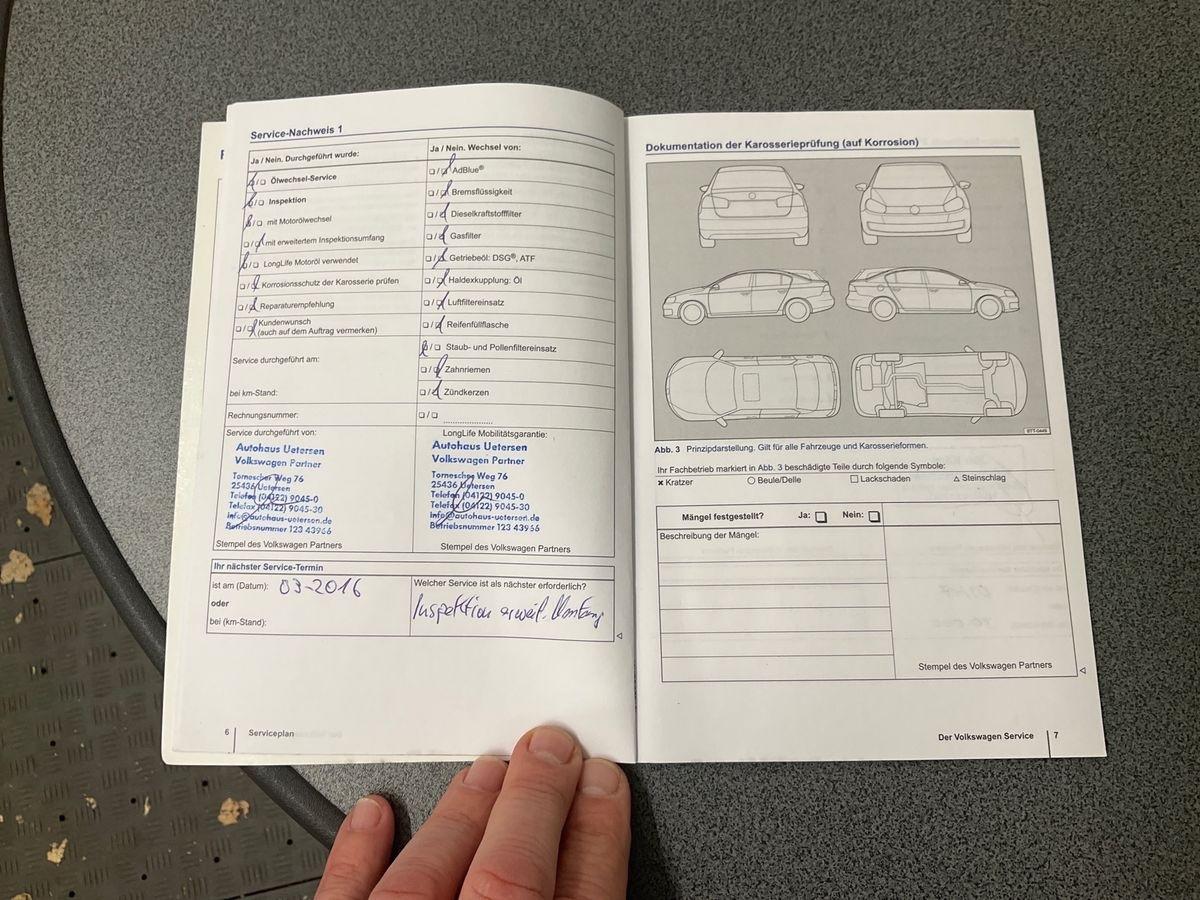 Service-Nachweis 1
Ja / Nein. Durchgeführt wurde:
Ölwechsel-Service
Inspektion
mit Motorölwechsel
mit erweitertem Inspektionsumfang
LongLife Motoröl verwendet
Korrosionsschutz der Karosserie prüfen
Reparaturempfehlung
Kundenwunsch
(auch auf dem Auftrag vermerken)
Service durchgeführt am:
bei km-Stand:
Rechnungsnummer:
Ja / Nein. Wechsel von:
AdBlue®
Bremsflüssigkeit
Dieselkraftstofffilter
Gasfilter
Getriebeöl: DSG®, ATF
Haldexkupplung: Öl
Luftfiltereinsatz
Reifenfüllflasche
Staub- und Pollenfiltereinsatz
Zahnriemen
Zündkerzen
Service durchgeführt von:
Autohaus Uetersen
Volkswagen Partner
Tornescher Weg 76
25436 Uetersen
Telefon (04122) 9045-0
Telefax (04122) 9045-30
info@autohaus-uetersen.de
Betriebsnummer 123 43966
Stempel des Volkswagen Partners
LongLife Mobilitätsgarantie:
Autohaus Uetersen
Volkswagen Partner
Tornescher Weg 76
25436 Uetersen
Telefon (04122) 9045-0
Telefax (04122) 9045-30
info@autohaus-uetersen.de
Betriebsnummer 123 43966
Stempel des Volkswagen Partners
Ihr nächster Service-Termin
ist am (Datum): 03-2016
oder
bei (km-Stand):
Welcher Service ist als nächster erforderlich?
Inspektion erweit. Umfang
6 Serviceplan
Dokumentation der Karosserieprüfung (auf Korrosion)
BTT-0449
Abb. 3 Prinzipdarstellung. Gilt für alle Fahrzeuge und Karosserieformen.
Ihr Fachbetrieb markiert in Abb. 3 beschädigte Teile durch folgende Symbole:
× Kratzer ○ Beule/Delle □ Lackschaden △ Steinschlag
Mängel festgestellt? Ja: Nein:
Beschreibung der Mängel:
Stempel des Volkswagen Partners
Der Volkswagen Service 7